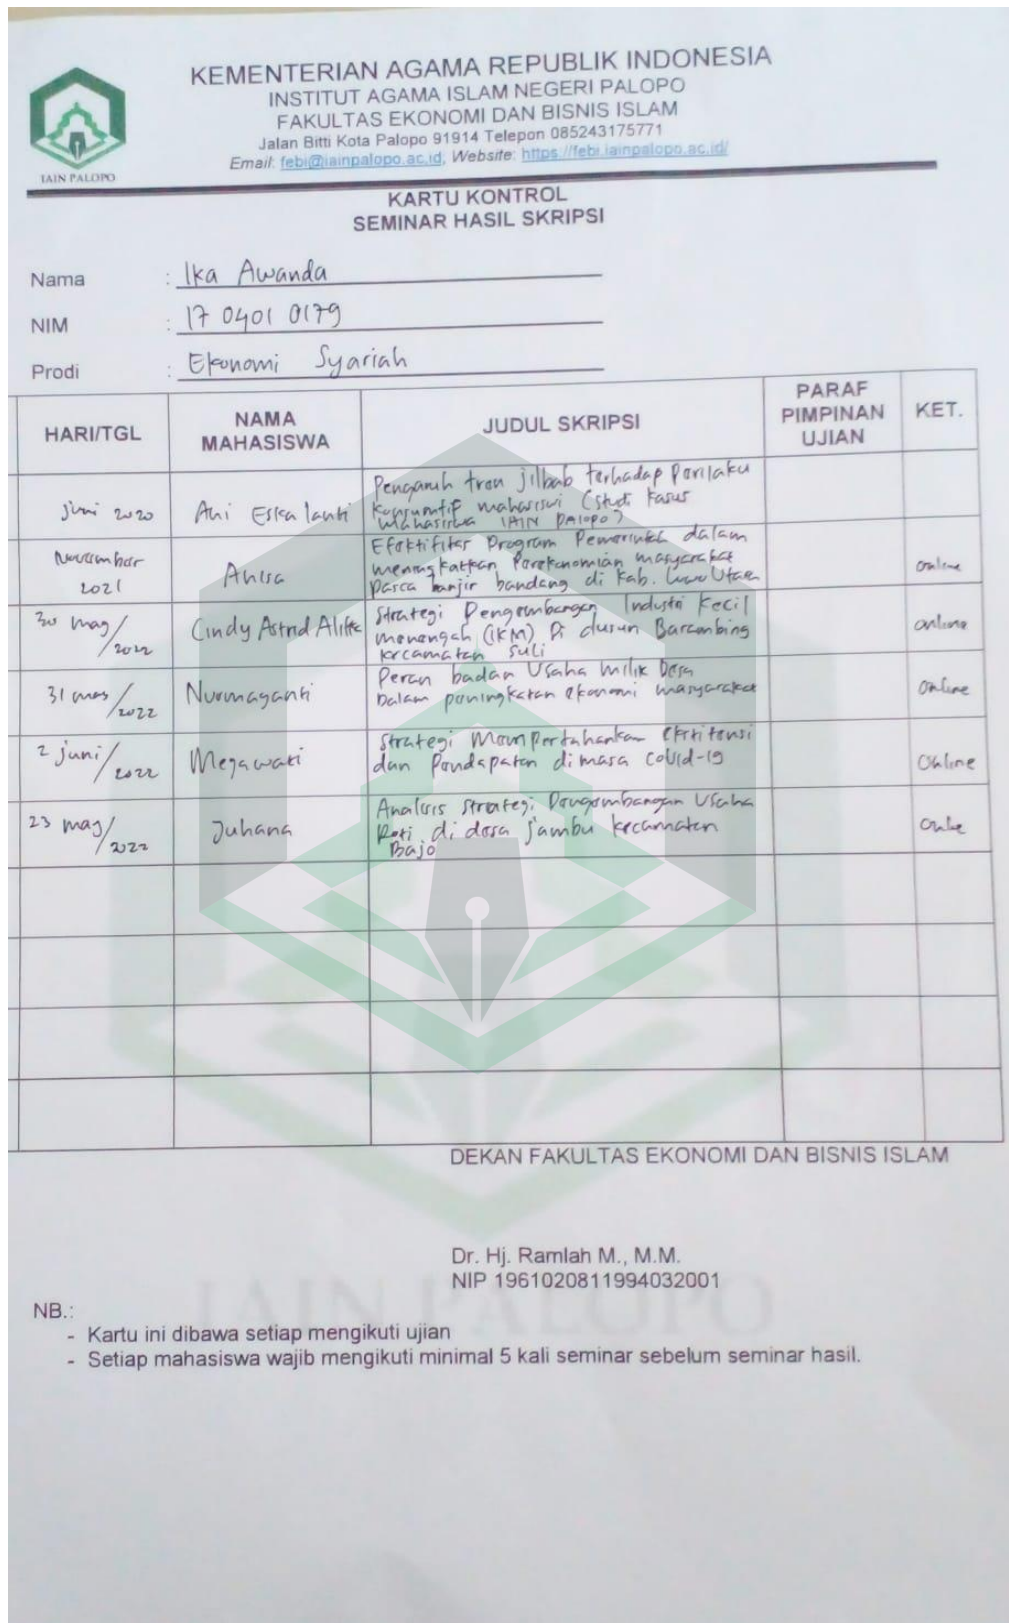 KEMENTERIAN AGAMA REPUBLIK INDONESIA
INSTITUT AGAMA ISLAM NEGERI PALOPO
FAKULTAS EKONOMI DAN BISNIS ISLAM
Jalan Bitti Kota Palopo 91914 Telepon 085243175771
Email: febi@iainpalopo.ac.id; Website: https://febi.iainpalopo.ac.id/
IAIN PALOPO
KARTU KONTROL
SEMINAR HASIL SKRIPSI
Nama : Ika Awanda
NIM : 17 0401 0179
Prodi : Ekonomi Syariah
HARI/TGL NAMA MAHASISWA JUDUL SKRIPSI PARAF PIMPINAN UJIAN KET.
juni 2020 Ani Eska lanti Pengaruh tren jilbab terhadap Perilaku
Konsumtif mahasiswi (Studi Kasus
Mahasiswa IAIN PALOPO)
November 2021 Anisa Efektifitas Program Pemerintah dalam
meningkatkan Perekonomian masyarakat
Pasca banjir bandang di Kab. Luwu Utara online
30 may/2022 Cindy Astrid Strategi Pengembangan Industri Kecil
menengah (IKM) Di dusun
kecamatan Suli online
31 /2022 Nurmayanti Peran badan Usaha milik Desa
Dalam peningkatan ekonomi masyarakat online
2 juni/2022 Megawati Strategi Mempertahankan
dan Pendapatan dimasa Covid-19 Online
23 may/2022 Juhana Analisis Strategi Pengembangan Usaha
Roti di desa jambu kecamatan
Bajo
DEKAN FAKULTAS EKONOMI DAN BISNIS ISLAM
Dr. Hj. Ramlah M., M.M.
NIP 1961020811994032001
IAIN PALOPO
NB.:
- Kartu ini dibawa setiap mengikuti ujian
- Setiap mahasiswa wajib mengikuti minimal 5 kali seminar sebelum seminar hasil.